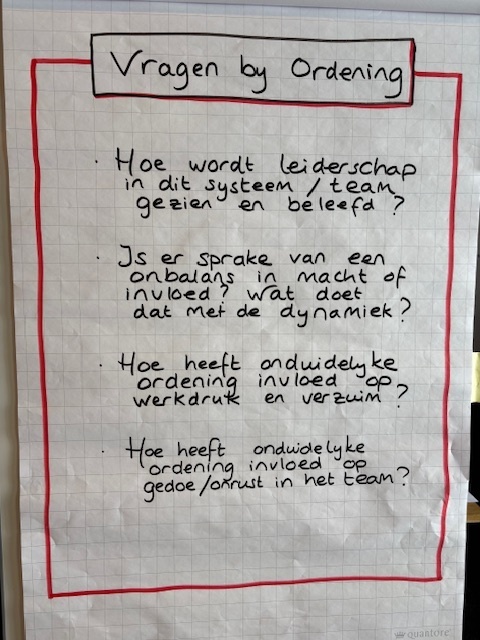 Vragen by Ordening
· Hoe wordt leiderschap
in dit systeem / team
gezien en beleefd ?
· Is er sprake van een
onbalans in macht of
invloed ? Wat doet
dat met de dynamiek ?
· Hoe heeft onduidelyke
ordening invloed op
werkdruk en verzuim ?
· Hoe heeft onduidelyke
ordening invloed op
gedoe/onrust in het team ?
quantore